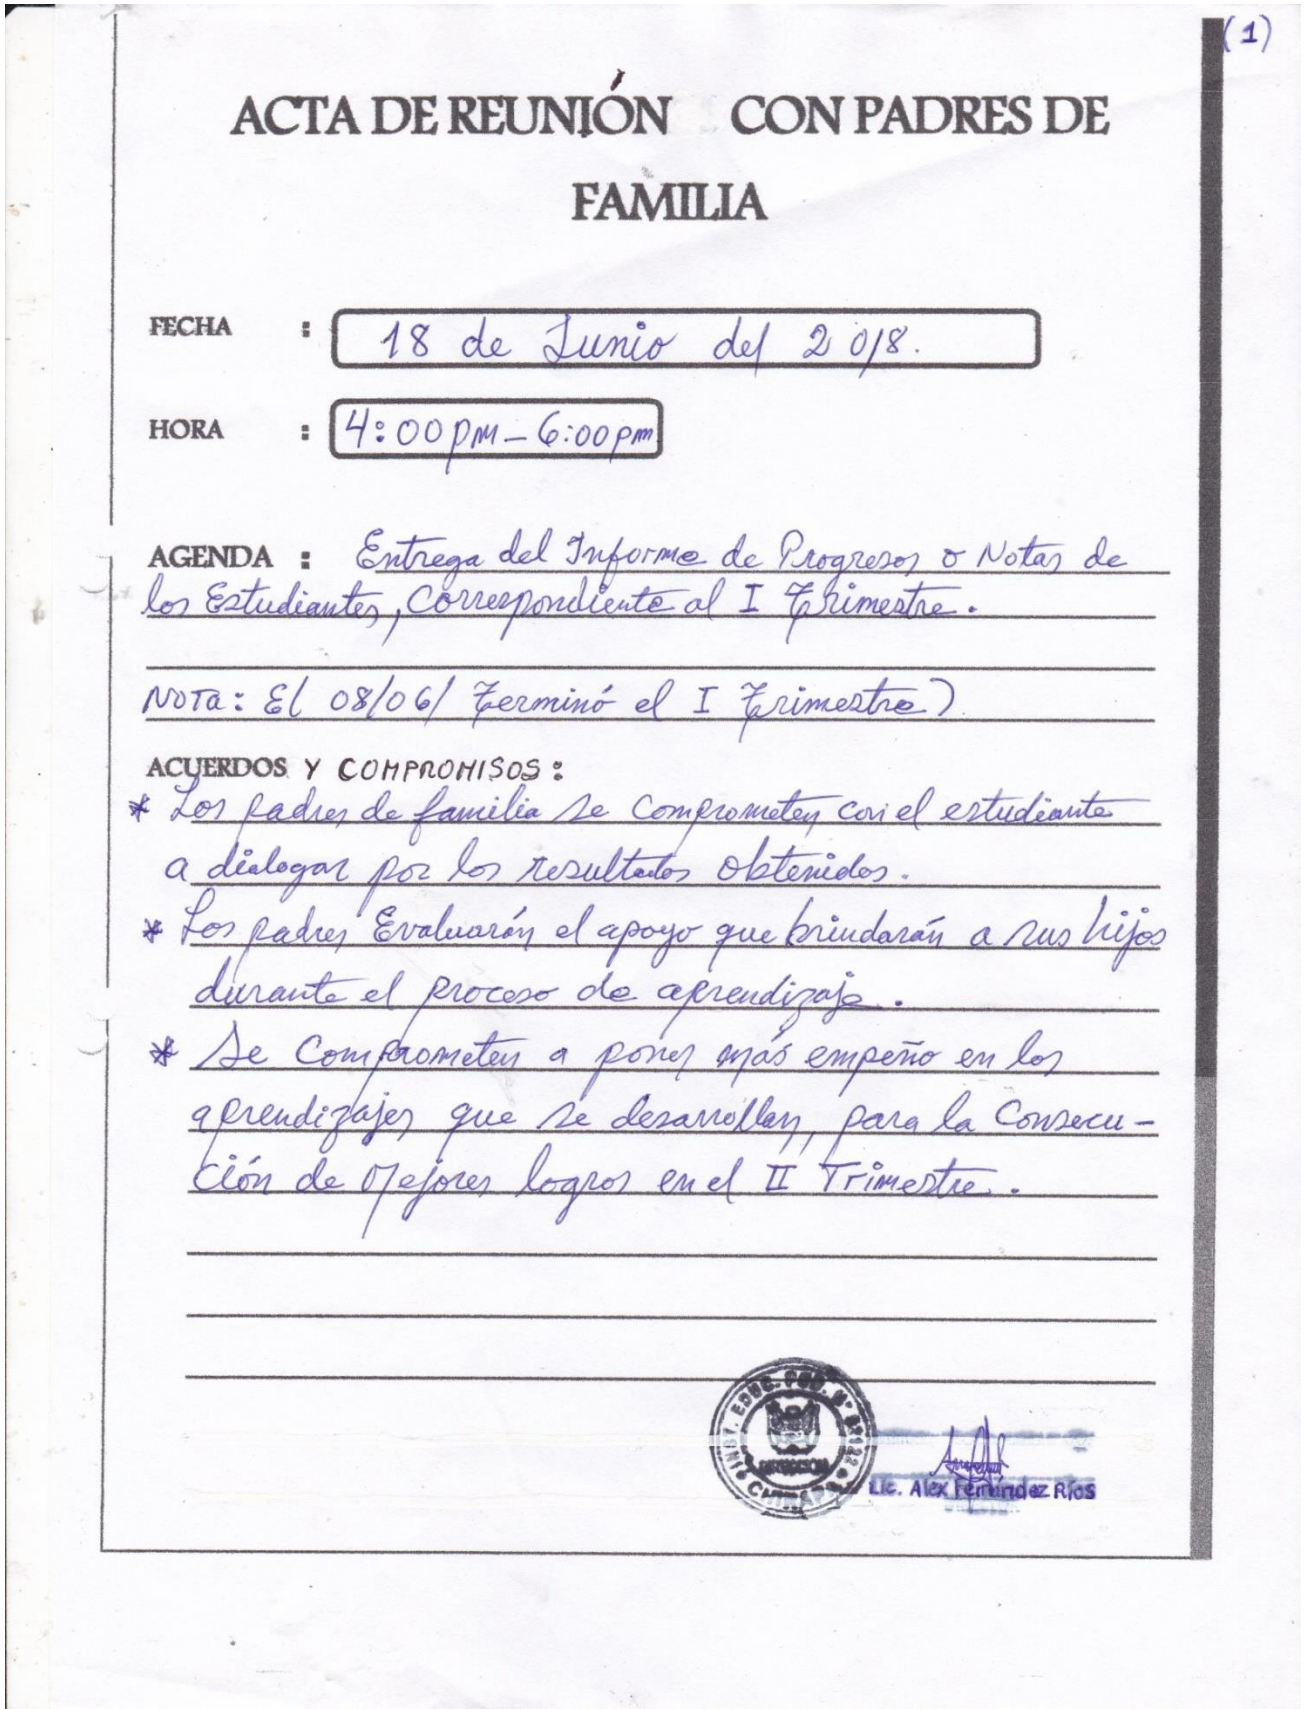 (1)
ACTA DE REUNIÓN CON PADRES DE
FAMILIA
FECHA : 18 de Junio del 2018.
HORA : 4:00pm - 6:00pm
AGENDA : Entrega del Informe de Progresos o Notas de
los Estudiantes, Correspondiente al I Trimestre.
NOTA: El 08/06/ Terminó el I Trimestre)
ACUERDOS Y COMPROMISOS:
* Los padres de familia se comprometen con el estudiante
a dialogar por los resultados obtenidos.
* Los padres Evaluarán el apoyo que brindarán a sus hijos
durante el proceso de aprendizaje.
* Se Comprometen a poner más empeño en los
aprendizajes que se desarrollan, para la Consecu-
ción de Mejores logros en el II Trimestre.
INST. EDUC. PUB. N°
DIRECCION
Lic. Alex Fernández Ríos